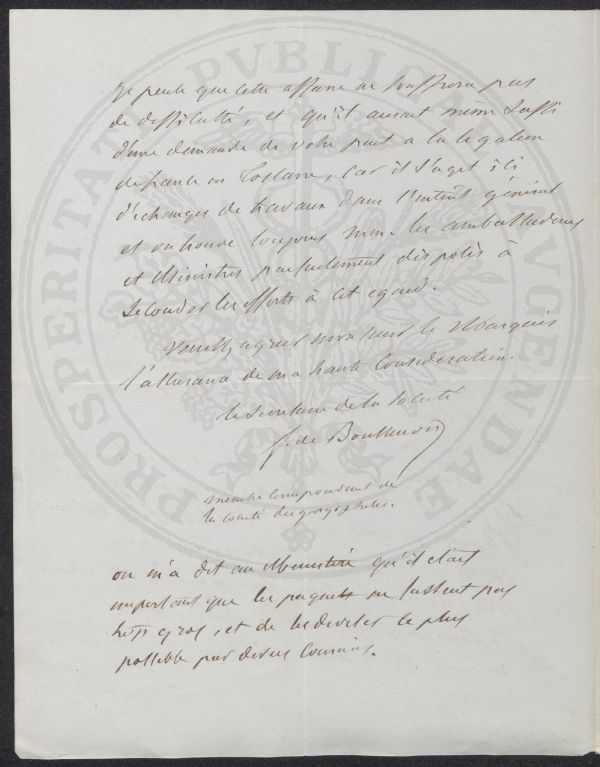 Je pense que cette affaire ne souffrira pas
de difficulté, et qu'il aurait même suffi
d'une demande de votre part a la legation
de france en Toscane, car il s'agit ici
d'echanges de travaux dans l'intérêt général
et on trouve toujours les ambassadeurs
et Ministres parfaitement disposés à
seconder les efforts à cet egard.
Veuillez agreer monsieur le Marquis
l'assurance de ma haute Consideration.
le Secretaire de la Société
f. de Boutteville
membre Correspondant de
la Société des georgophiles
on m'a dit au Ministère qu'il etait
important que les paquets ne fussent pas
trop gros, et de les diviser le plus
possible par divers Courriers.
PROSPERITATI PVBLICAE AVGENDAE